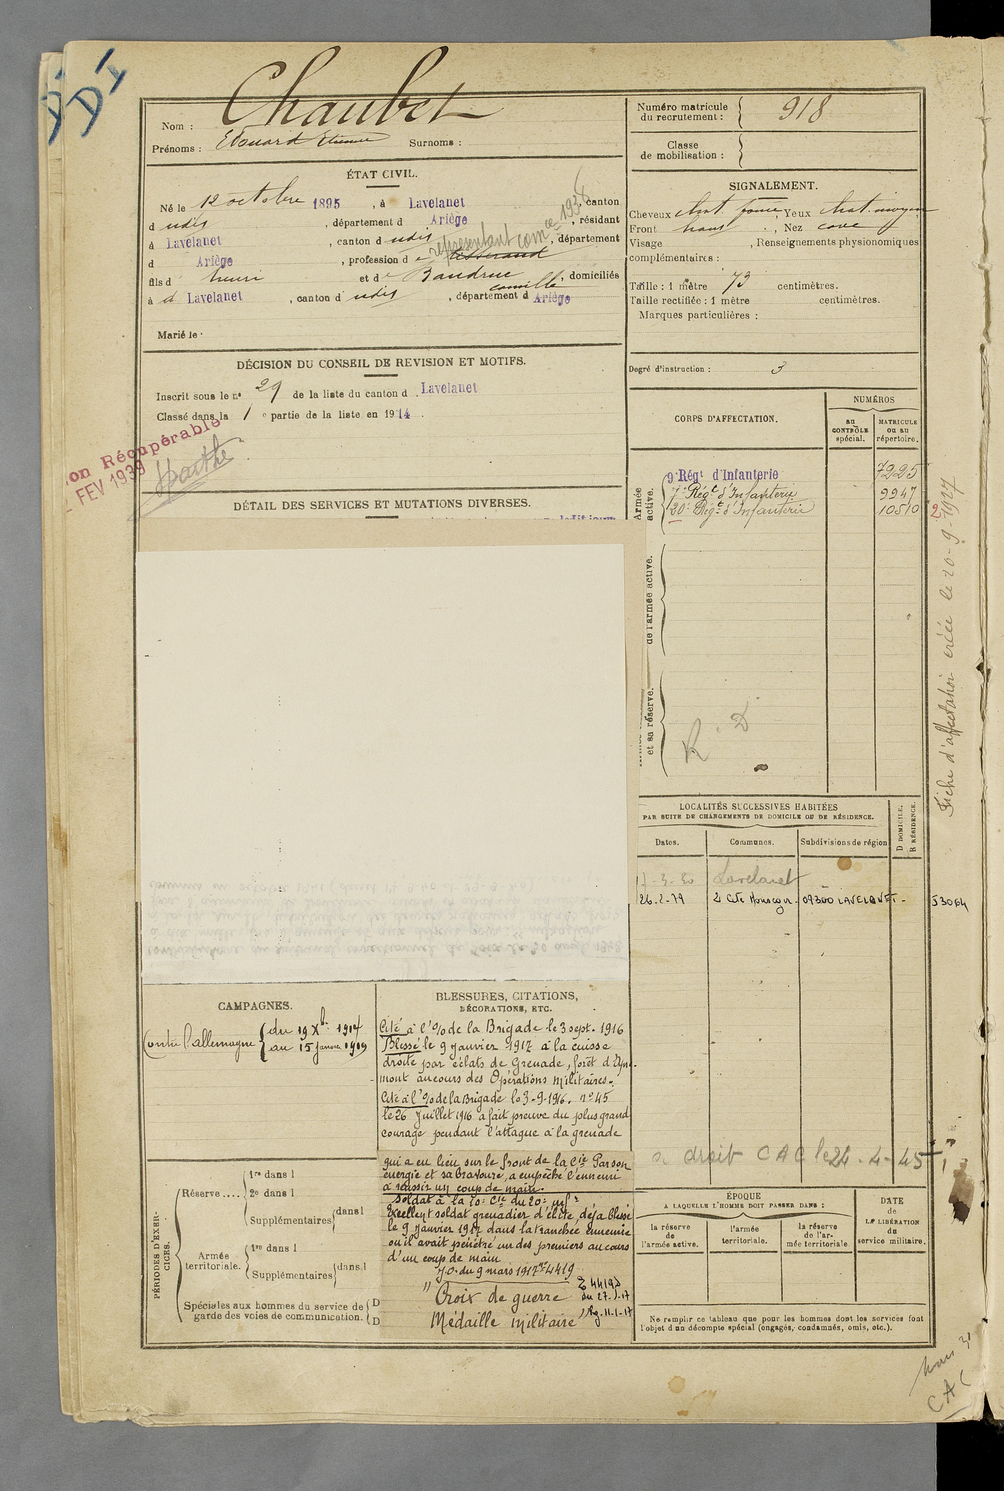 DI
DI
Chaubet
Nom :
Prénoms : Edouard Etienne Surnoms :
Numéro matricule
du recrutement : 918
Classe
de mobilisation :
ÉTAT CIVIL.
Né le 12 octobre 1895, à Lavelanet canton
d udis, département d Ariège, résidant
à Lavelanet, canton d udis, département
représentant com ce 1938
d Ariège, profession d e tisserand
fils d henri et d e Baudruc, domiciliés
camille
à d Lavelanet, canton d udis, département d Ariège
Marié le
SIGNALEMENT.
Cheveux chat foncé, Yeux chat. moyen
Front haut, Nez cave
Visage , Renseignements physionomiques
complémentaires :
Taille : 1 mètre 73 centimètres.
Taille rectifiée : 1 mètre centimètres.
Marques particulières :
Degré d'instruction : 3
DÉCISION DU CONSEIL DE REVISION ET MOTIFS.
Inscrit sous le n° 29 de la liste du canton d Lavelanet
Classé dans la 1 e partie de la liste en 1914
on Récupérable
FEV 1939
DÉTAIL DES SERVICES ET MUTATIONS DIVERSES.
CORPS D'AFFECTATION.
NUMÉROS
au
CONTRÔLE
spécial.
MATRICULE
ou au
répertoire.
Armée
active.
9e Régt d'Infanterie 7225
7e Régt d'Infanterie 9947
20e Régt d'Infanterie 10510
de l'armée active.
et sa réserve.
R. D
2
Fiche d'affectation créée le 20-9-1927
LOCALITÉS SUCCESSIVES HABITÉES
PAR SUITE DE CHANGEMENTS DE DOMICILE OU DE RÉSIDENCE.
D DOMICILE.
R RÉSIDENCE.
Dates. Communes. Subdivisions de région
Lavelanet
26.2.79 09300 LAVELANET -
a droit CAC le 24-4-45
CAMPAGNES.
Contre l'allemagne
du 19 Xbre 1914
au 15 Janvier 1919
BLESSURES, CITATIONS,
DÉCORATIONS, ETC.
Cité à l'% de la Brigade le 3 sept. 1916
Blessé le 9 janvier 1917 à la cuisse
droite par éclats de Grenade, forêt d'Apre-
mont au cours des Opérations militaires.
Cité à l'% de la Brigade le 3-9-1916. n° 45
le 26 Juillet 1916 a fait preuve du plus grand
courage pendant l'attaque à la grenade
qui a eu lieu sur le front de la Cie Par son
énergie et sa bravoure, a empêché l'ennemi
à réussir un coup de main.
Soldat à la 10e Cie du 20e infie
Excellent soldat grenadier d'élite, déjà blessé
le 9 janvier 1917 dans la tranchée ennemie
où il avait pénétré un des premiers au cours
d'un coup de main
J.O. du 9 mars 1917 n° 4419
Croix de guerre
Médaille militaire
PÉRIODES D'EXER-
CICES.
Réserve ....
1re dans l
2e dans l
Supplémentaires dans l
Armée
territoriale.
1re dans l
Supplémentaires dans l
Spéciales aux hommes du service de
garde des voies de communication.
D
D
ÉPOQUE
A LAQUELLE L'HOMME DOIT PASSER DANS :
la réserve
de
l'armée active.
l'armée
territoriale.
la réserve
de l'ar-
mée territoriale
DATE
de
LA LIBÉRATION
du
service militaire.
Ne remplir ce tableau que pour les hommes dont les services font
l'objet d'un décompte spécial (engagés, condamnés, omis, etc.).
CAC